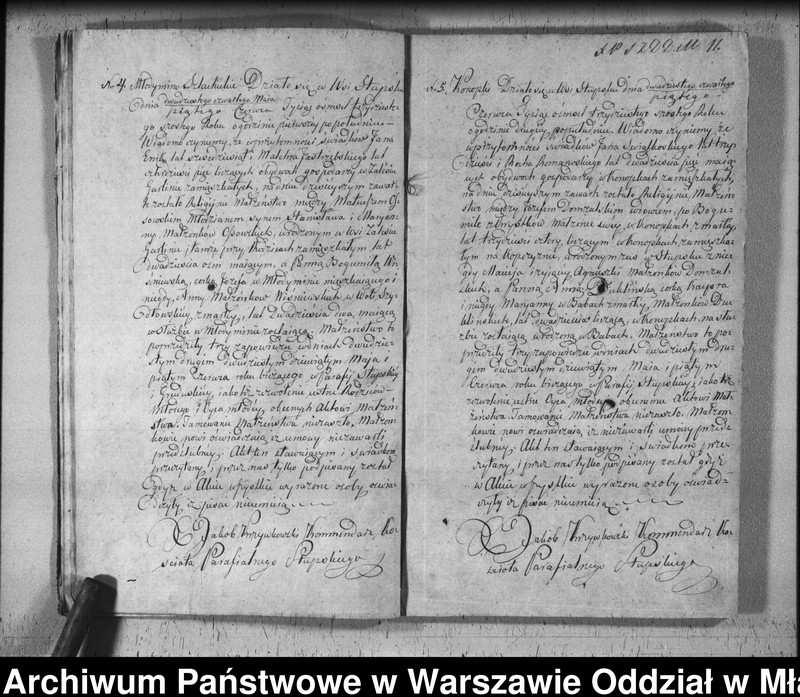 No 4. Młodynino Szlacheckie Działo się w Wsi Słupsku
dnia dwudziestego czwartego Maja
piątego Czerwca Tysiąc osmset trzydzieste-
go szostego Roku o godzinie po południu
Wiadomo czynimy, że w przytomności swiadków Jana
lat szescdziesiąt i lat
obydwoch gospodarzy w Zalesiu
zamieszkałych, na dniu dzisieyszym zawar-
te zostało Religiyne Małżeństwo między
Młodzianem synem Stanisława i Maryan-
ny Małżonków Osowskich, urodzonym w Wsi Zalesiu
i tamże przy Rodzicach zamieszkałym lat
dwadziescia osm maiącym, a Panną Bogumiłą Wi-
sniewską, corką Józefa w Młodyninie mieszkaiącego i
niegdy Anny Małżonków Wisniewskich
zmarłey, lat dwadziescia dwa maiącą
w Słuzbie w Młodyninie zostaiącą. Małżeństwo to
poprzedziły trzy zapowiedzi w dniach dwudzie-
stym drugim dwudziestym dziewiątym Maja i
piątym Czerwca roku bieżącego w Parafij Słupskiey
i jako też zezwolenie ustne Rodziców
Młodego i Oyca młodey, obecnych Aktowi Małżeń-
stwa. Tamowanie Małżeństwa niezaszło, Małżon-
kowie nowi oswiadczaią iż umowy niezawarli
przedslubney, Akt ten stawaiącym i swiadkom
przeczytany, i przez nas tylko podpisany został
gdyż w Akcie wszystkie wyrażone osoby oswiad-
czyły iż pisać nieumieią
X Jakób Krzywkowski Kommendarz Ko-
scioła Parafialnego Słupskiego
11.
No 5. Konopki Działo się w Wsi Słupsku dnia dwudziestego czwartego
piątego
Czerwca Tysiąc osmset trzydziestego szostego Roku
o godzinie drugiey popołudniu. Wiadomo czynimy, że
w przytomności swiadków Jana Swiątkowskiego lat trzy-
dziesci i Rocha Romanowskiego lat dwadziescia pięć maią-
cych obydwoch gospodarzy w Konopkach zamieszkałych,
na dniu dzisieyszym zawarte zostało Religiyne Małżeń-
stwo między Józefem Domzalskim wdowcem, po Bogu-
mile Małżonce swey, w Konopkach zmarłey,
lat trzydziesci cztery liczącym, w Konopkach zamieszka-
łym na urodzonym zas w Słupsku z nie-
gdy Macieja i żyjącey Agnieszki Małżonków Domzal-
skich, a Panną Anną corką Kacpra
i niegdy Maryanny w Babach zmarłey, Małżonków
lat dwadziescia liczącą, w Konopkach na słu-
zbie zostaiącą urodzoną w Babach. Małżeństwo to po-
przedziły trzy zapowiedzi w dniach dwudziestym dru-
gim dwudziestym dziewiątym Maia i piątym
Czerwca roku bieżącego w Parafij Słupskiey, i jako też
zezwolenie ustne Oyca młodey obecnemu Aktowi Mał-
żeństwa. Tamowanie Małżeństwa niezaszło. Małżon-
kowie nowi oswiadczaią iż niezawarli umowy przed-
slubney, Akt ten stawaiącym i swiadkom prze-
czytany, i przez nas tylko podpisany został gdyż
w Akcie wszystkie wyrażone osoby oswiad-
czyły iż pisać nieumieią
X Jakób Krzywkowski Kommendarz Ko-
scioła Parafialnego Słupskiego
Archiwum Państwowe w Warszawie Oddział w Mła